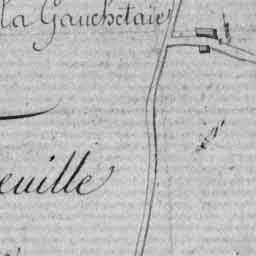 la Gauchetaie
euille